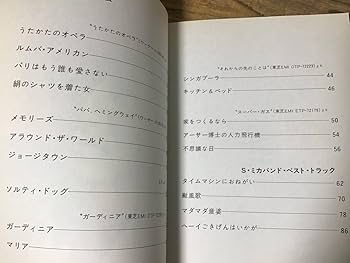 "うたかたのオペラ"
うたかたのオペラ
ルムバ・アメリカン
パリはもう誰も愛さない
絹のシャツを着た女
"パパ・ヘミングウェイ"
メモリーズ
アラウンド・ザ・ワールド
ジョージタウン
ソルティ・ドッグ
"ガーディニア"
ガーディニア
マリア
"それから先のことは"(東芝EMI ETP-72223)より
シンガプーラ 44
キッチン&ベッド 46
"スーパー・ガス"(東芝EMI
家をつくるなら 50
アーサー博士の人力飛行機 54
不思議な日 56
S・ミカバンド・ベスト・トラック
タイムマシンにおねがい 64
颱風歌 70
マダマダ産婆 74
ヘーイごきげんはいかが 86